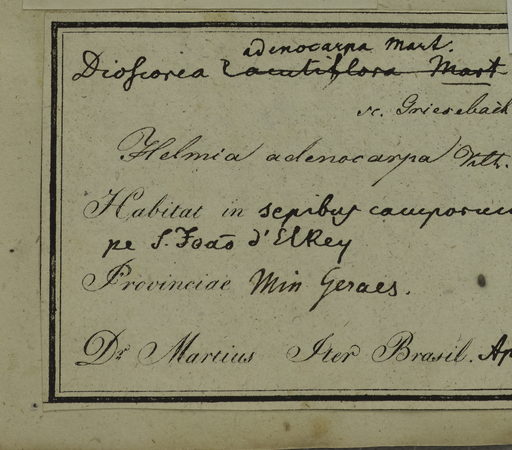 adenocarpa Mart.
Dioscorea acutiflora Mart
sc. Griesebach
Helmia adenocarpa Kth.
Habitat in sepibus camporum
pe S. João d'El Rey
Provinciae Min Geraes.
Dr. Martius Iter Brasil. Ap